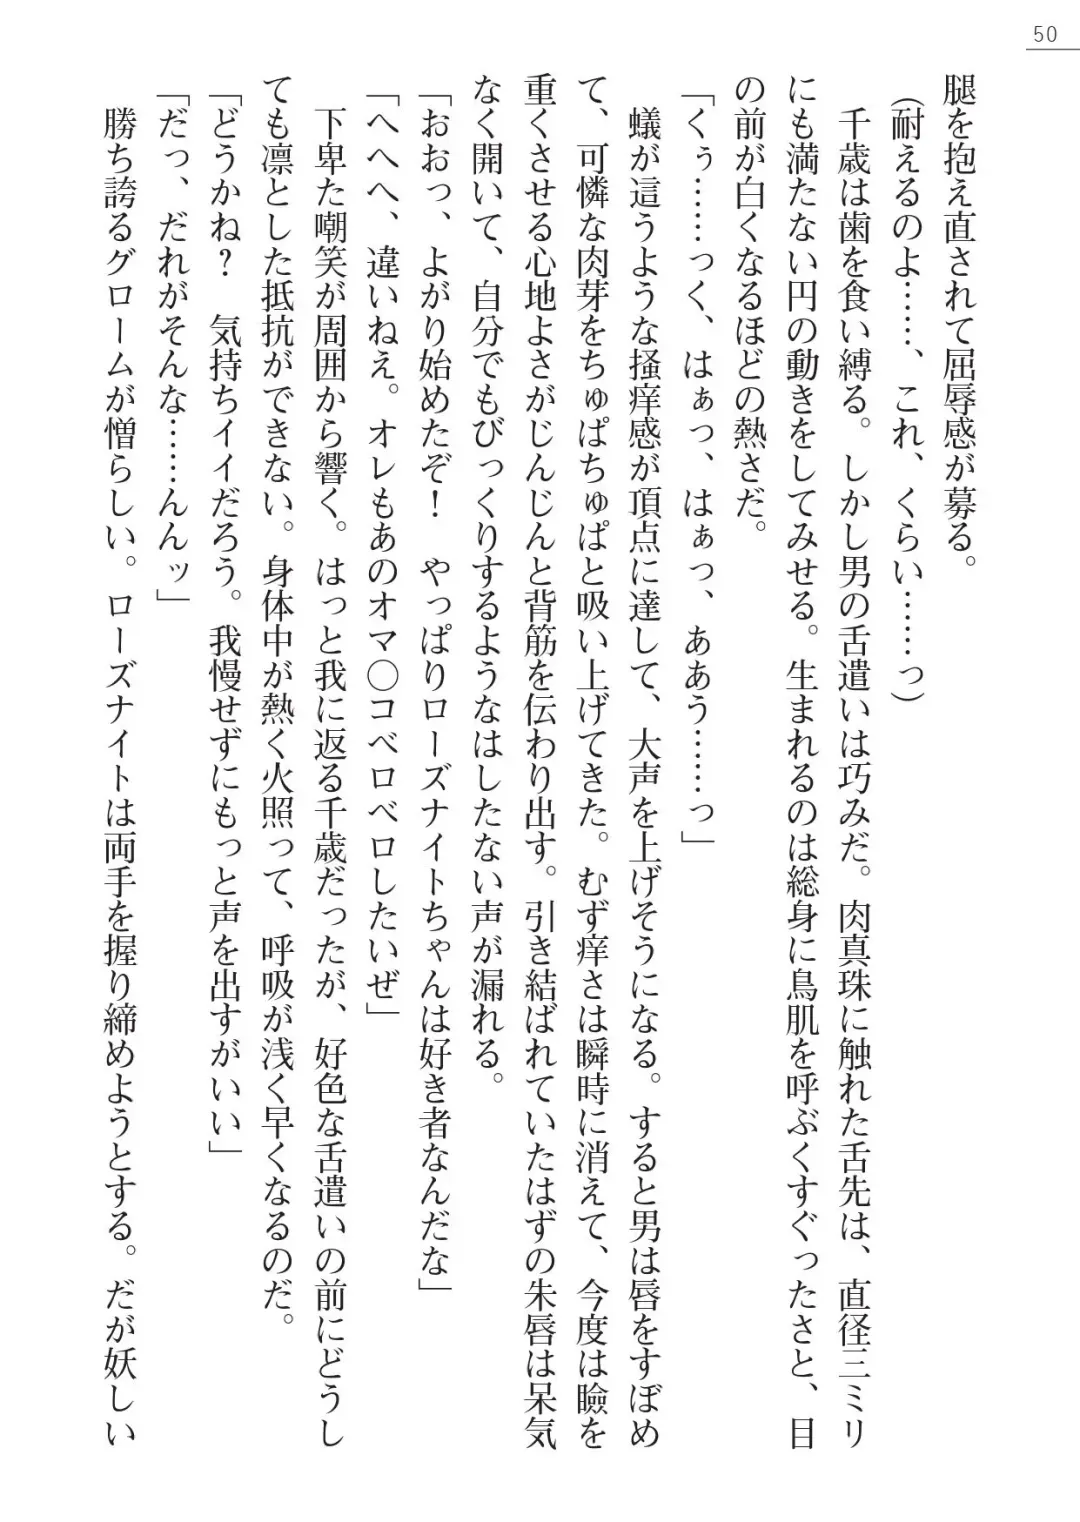 50
腿を抱え直されて屈辱感が募る。
（耐えるのよ……、これ、くらい……っ）
千歳は歯を食い縛る。しかし男の舌遣いは巧みだ。肉真珠に触れた舌先は、直径三ミリ
にも満たない円の動きをしてみせる。生まれるのは総身に鳥肌を呼ぶくすぐったさと、目
の前が白くなるほどの熱さだ。
「くぅ……っく、はぁっ、はぁっ、ああう……っ」
蟻が這うような掻痒感が頂点に達して、大声を上げそうになる。すると男は唇をすぼめ
て、可憐な肉芽をちゅぱちゅぱと吸い上げてきた。むず痒さは瞬時に消えて、今度は瞼を
重くさせる心地よさがじんじんと背筋を伝わり出す。引き結ばれていたはずの朱唇は呆気
なく開いて、自分でもびっくりするようなはしたない声が漏れる。
「おおっ、よがり始めたぞ！　やっぱりローズナイトちゃんは好き者なんだな」
「へへへ、違いねえ。オレもあのオマ〇コベロベロしたいぜ」
下卑た嘲笑が周囲から響く。はっと我に返る千歳だったが、好色な舌遣いの前にどうし
ても凛とした抵抗ができない。身体中が熱く火照って、呼吸が浅く早くなるのだ。
「どうかね？　気持ちイイだろう。我慢せずにもっと声を出すがいい」
「だっ、だれがそんな……んんッ」
勝ち誇るグロームが憎らしい。ローズナイトは両手を握り締めようとする。だが妖しい